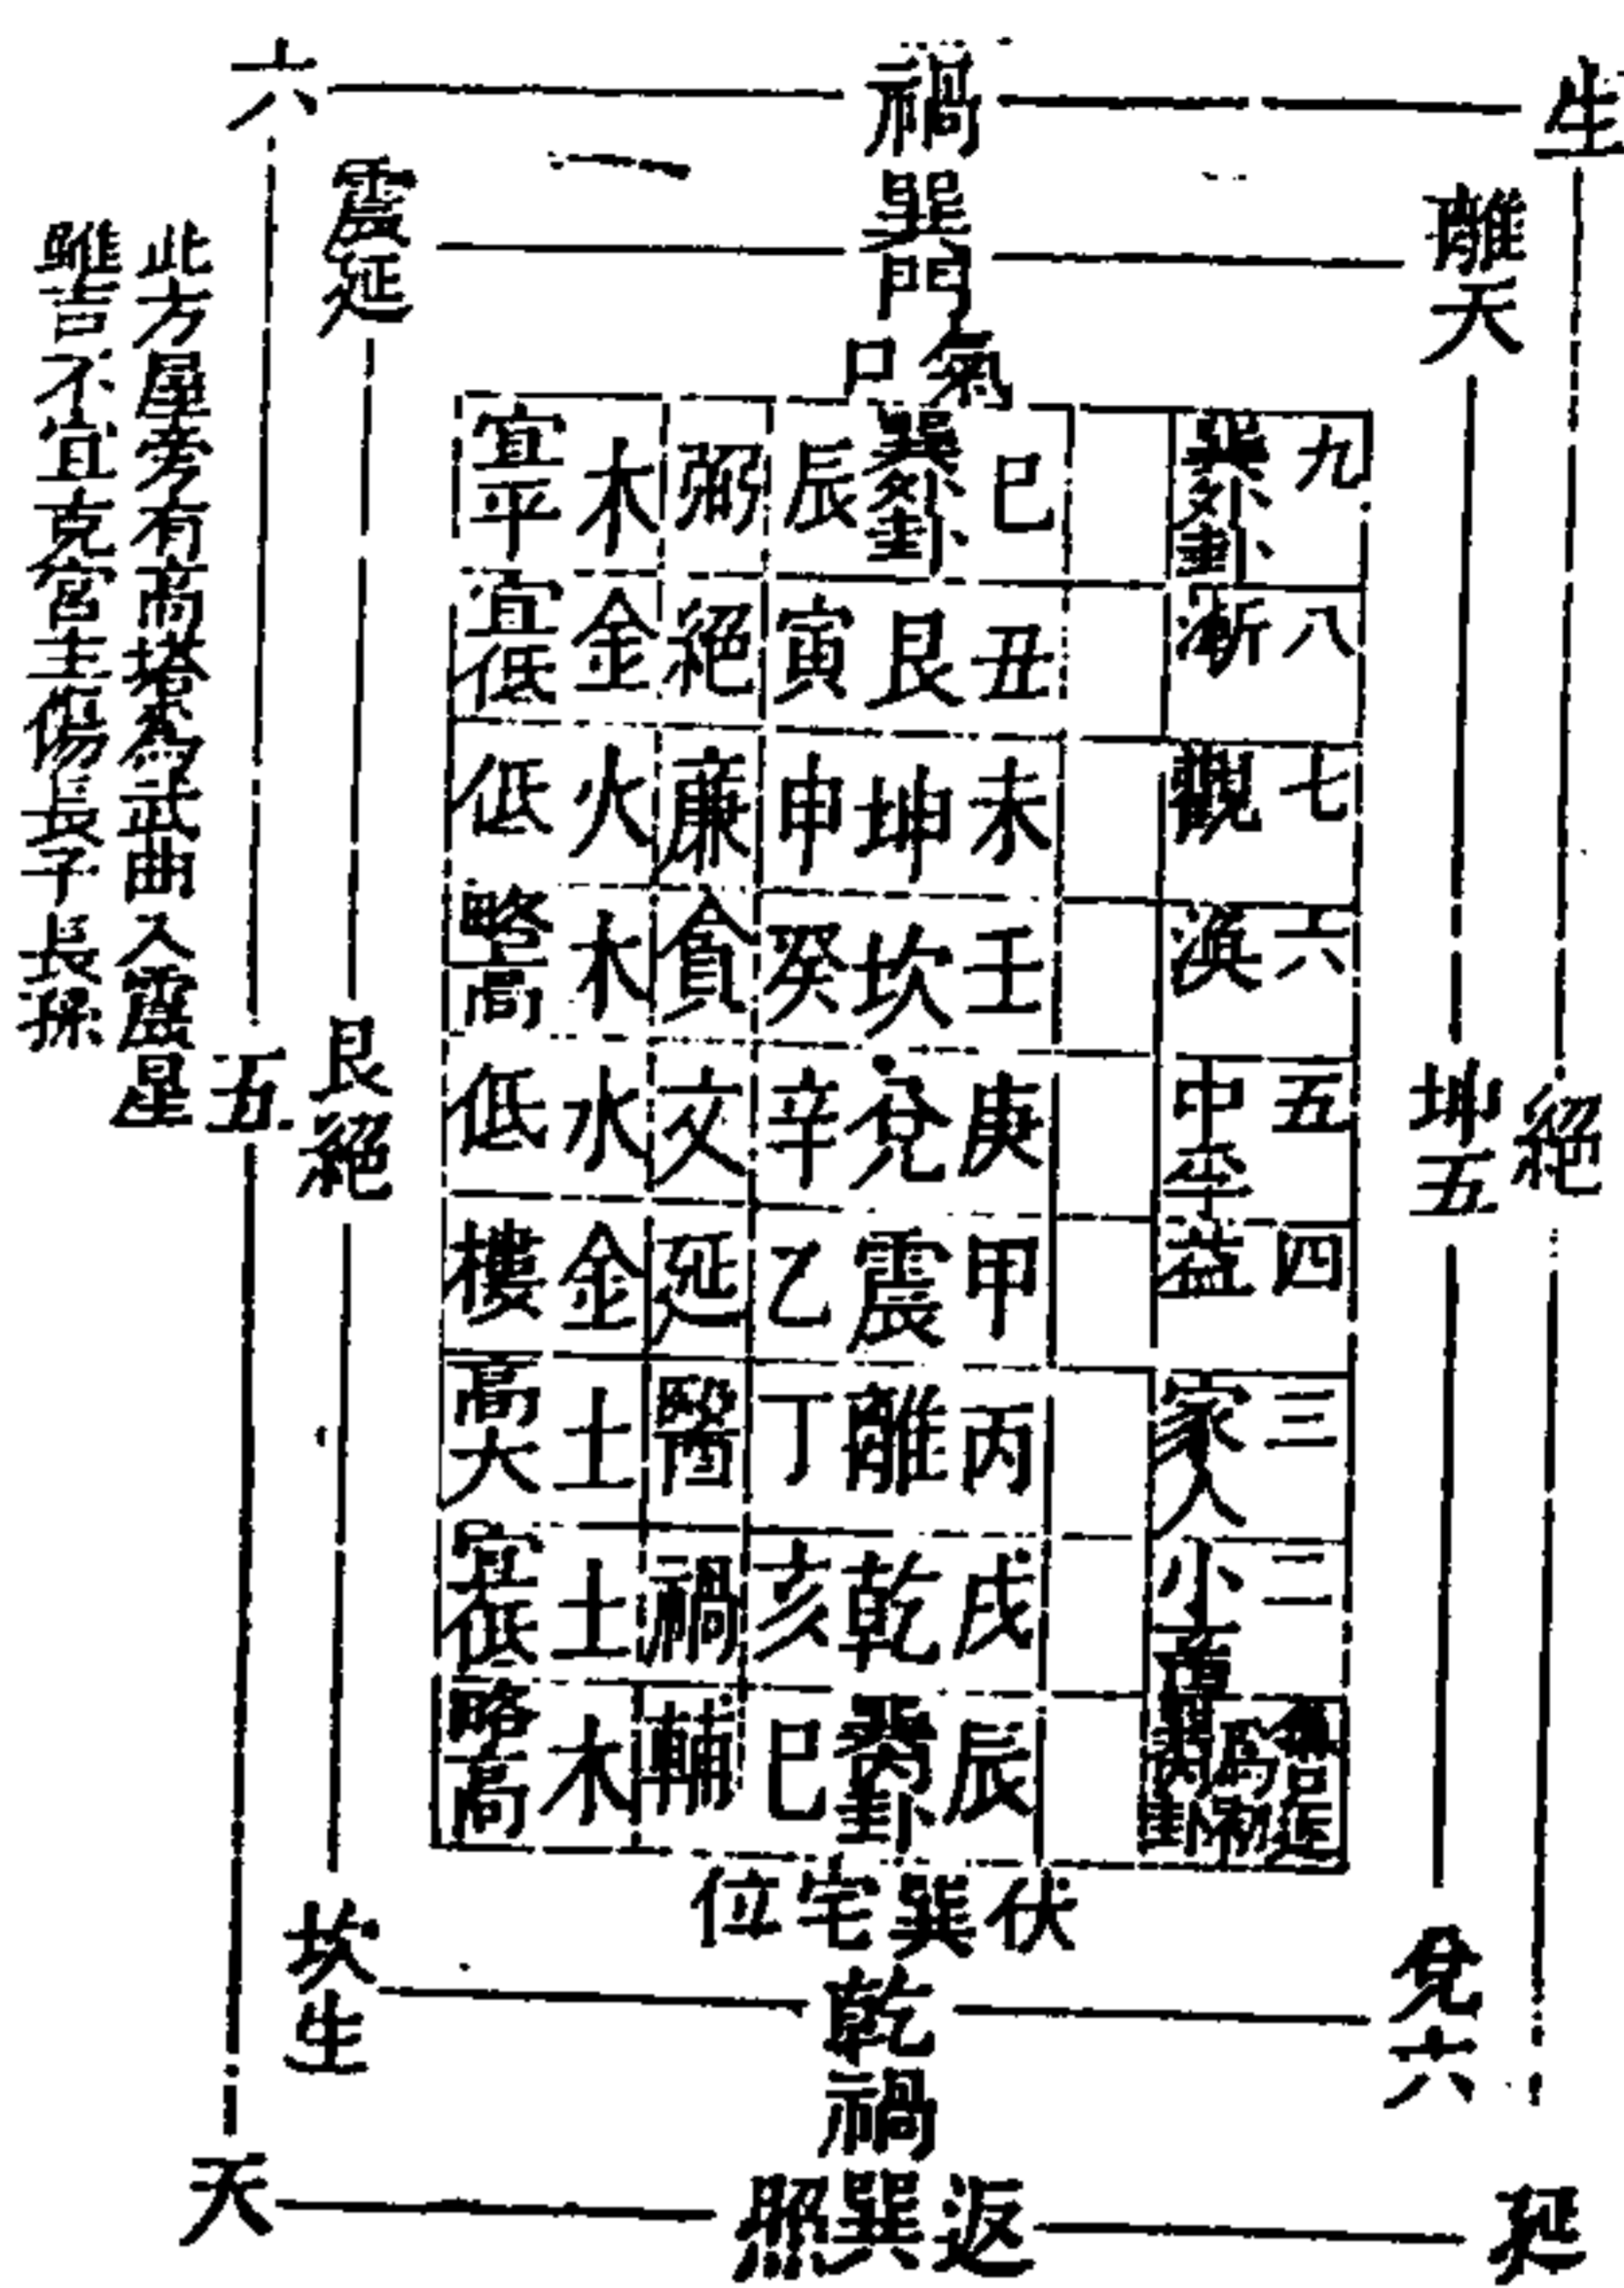 生 禍 六
離天 巽門 震延
氣口
九 巽外卦 巳 巽外卦 辰 弼 木 宜平
八 漸 丑 艮 寅 絕 金 宜低
七 觀 未 坤 申 廉 火 低
六 渙 壬 坎 癸 貪 木 略高
五 中孚 庚 兌 辛 文 水 低
四 益 甲 震 乙 延 金 樓
三 家人 丙 離 丁 醫 土 高大
二 小畜 戌 乾 亥 禍 土 宜低
辰 巽內卦 巳 輔 木 略高
絕 坤五 艮絕 五
伏巽宅位
兌六 乾禍 坎生
延 返巽照 天
此方屋旁有高塔名為武曲入震星
雖吉不宜克宮主傷長子長孫